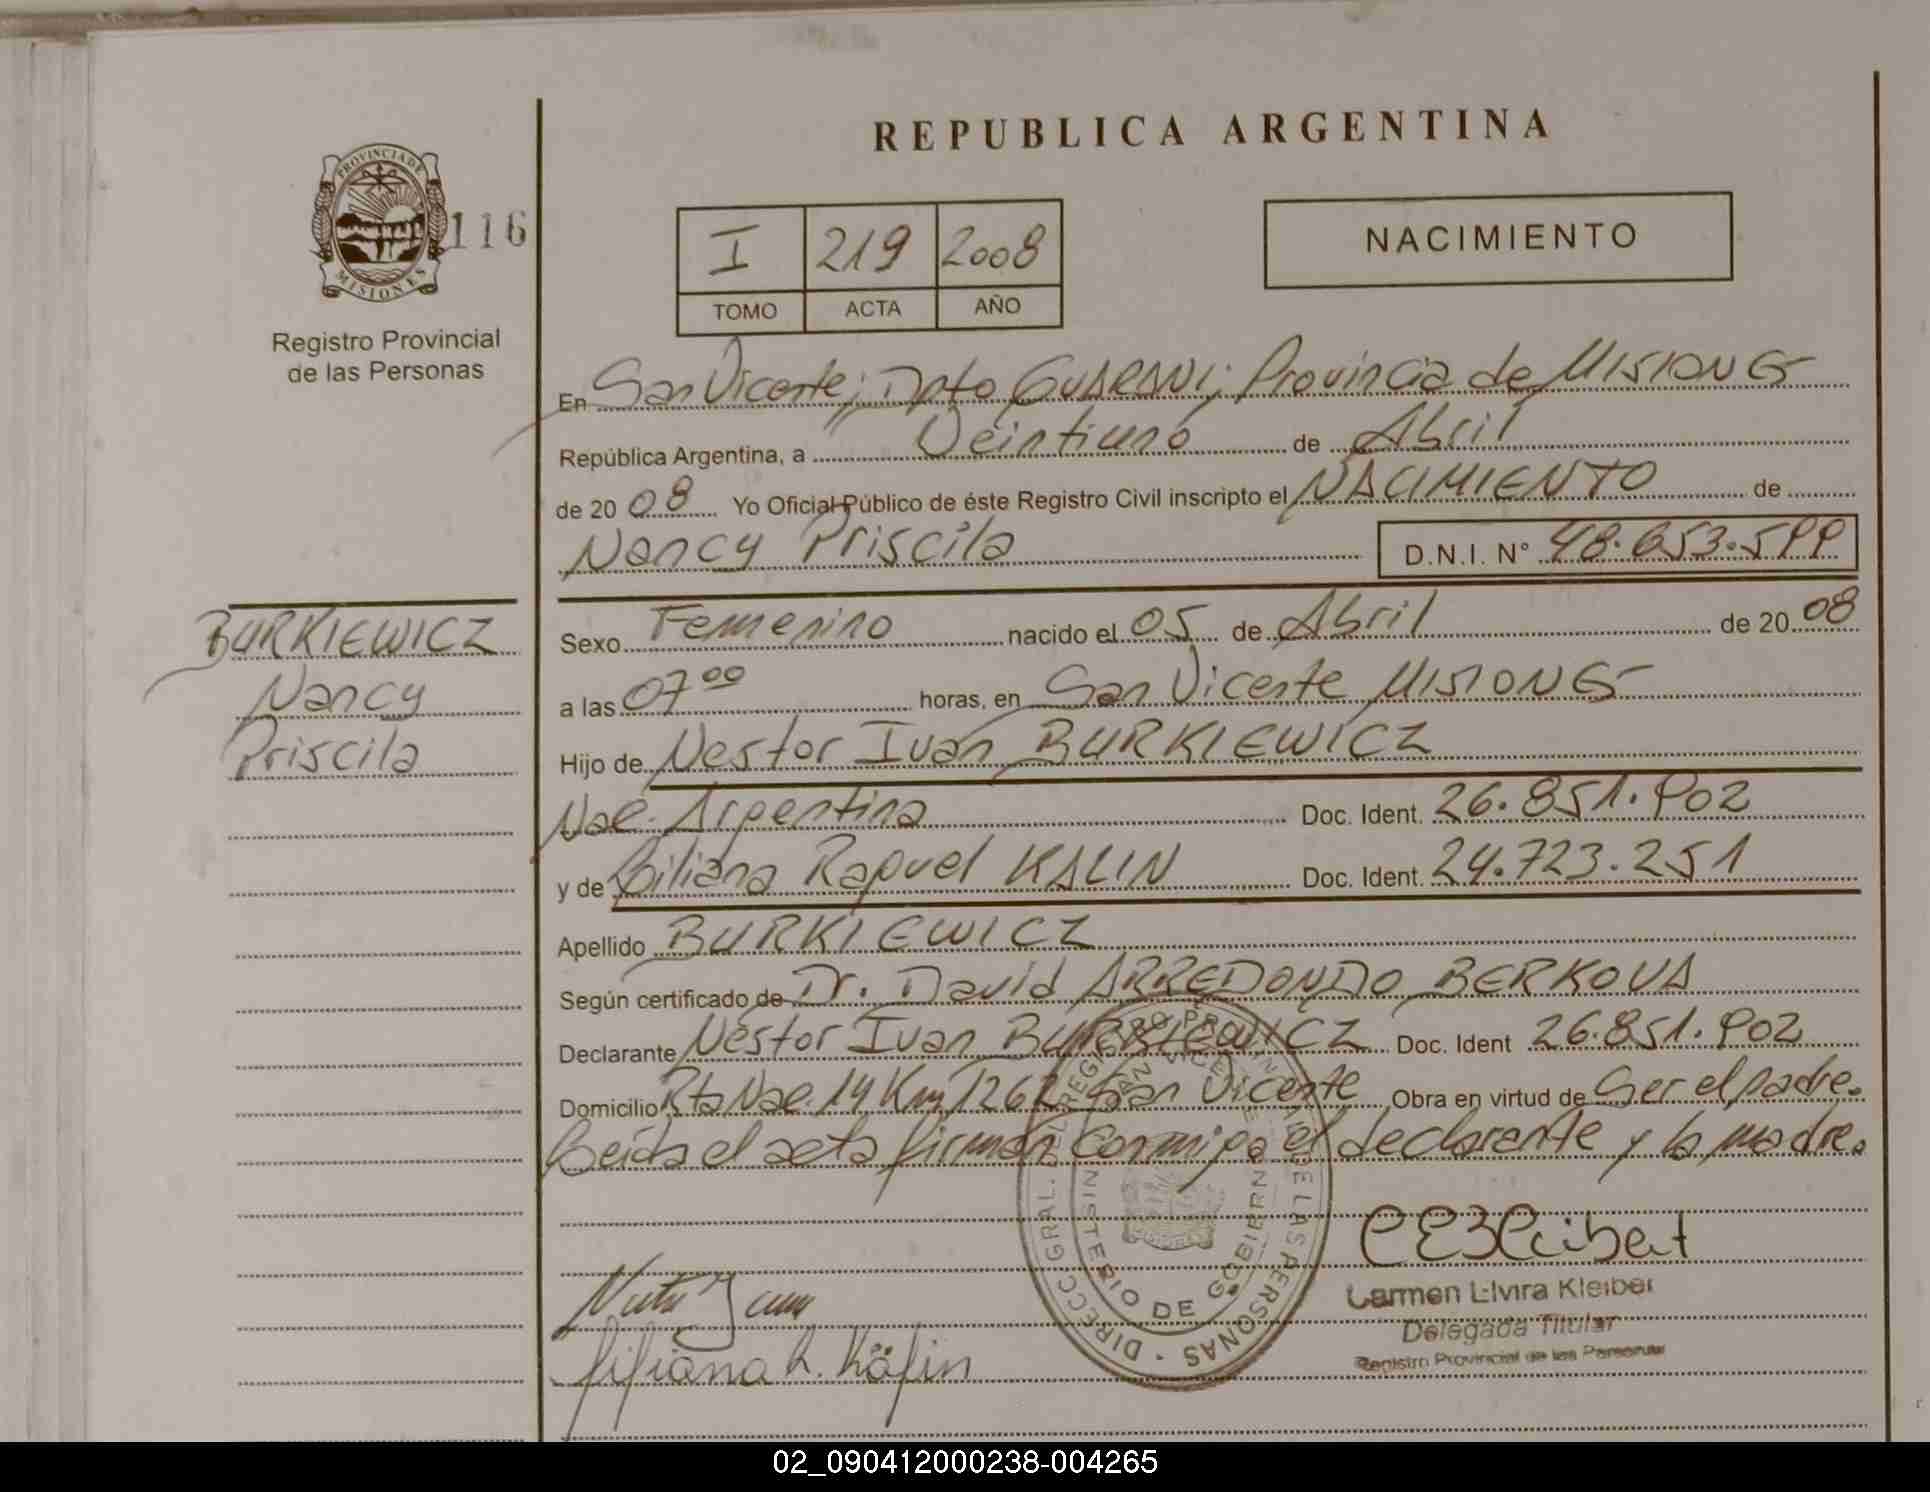 REPUBLICA ARGENTINA
PROVINCIA DE
MISIONES
116
Registro Provincial
de las Personas
I 219 2008
TOMO ACTA AÑO
NACIMIENTO
En San Vicente; Dpto GUARANI; Provincia de MISIONES
República Argentina, a Veintiuno de Abril
de 2008 Yo Oficial Público de éste Registro Civil inscripto el NACIMIENTO de
Nancy Priscila D.N.I. N° 48.653.599
BURKIEWICZ
Nancy
Priscila
Sexo Femenino nacido el 05 de Abril de 2008
a las 07 00 horas, en San Vicente MISIONES
Hijo de Nestor Ivan BURKIEWICZ
Nac. Argentina Doc. Ident. 26.851.902
y de Liliana Raquel KALIN Doc. Ident. 24.723.251
Apellido BURKIEWICZ
Según certificado de Dr. David ARREDONDO BERKOVA
Declarante Nestor Ivan BURKIEWICZ Doc. Ident 26.851.902
Domicilio Rta Nac. 14 Km 1262 San Vicente Obra en virtud de Ser el padre.
Leída el acta firman conmigo el declarante y la madre.
DIRECC GRAL. DEL REGISTRO PROVINCIAL DE LAS PERSONAS
SAN VICENTE
MINISTERIO DE GOBIERNO
Carmen Elvira Kleiber
Delegada Titular
Registro Provincial de las Personas
Liliana R. Kälin
02_090412000238-004265